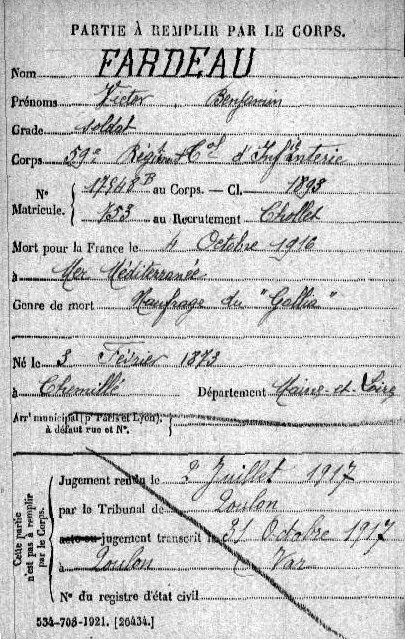 PARTIE À REMPLIR PAR LE CORPS.
Nom FARDEAU
Prénoms Victor Benjamin
Grade soldat
Corps 59e Régint Cal d'Infanterie
Nº Matricule. 17548B au Corps. — Cl. 1893
153 au Recrutement Chollet
Mort pour la France le 4 Octobre 1916
à Mer Méditerranée
Genre de mort Naufrage du "Gallia"
Né le 3 Février 1873
à Chemillé Département Maine-et-Loire
Arrt municipal (pr Paris et Lyon),
à défaut rue et Nº.
Cette partie n'est pas à remplir par le Corps.
Jugement rendu le 2 Juillet 1917
par le Tribunal de Toulon
acte ou jugement transcrit le 31 Octobre 1917
à Toulon (Var)
Nº du registre d'état civil
534-708-1921. [26434.]